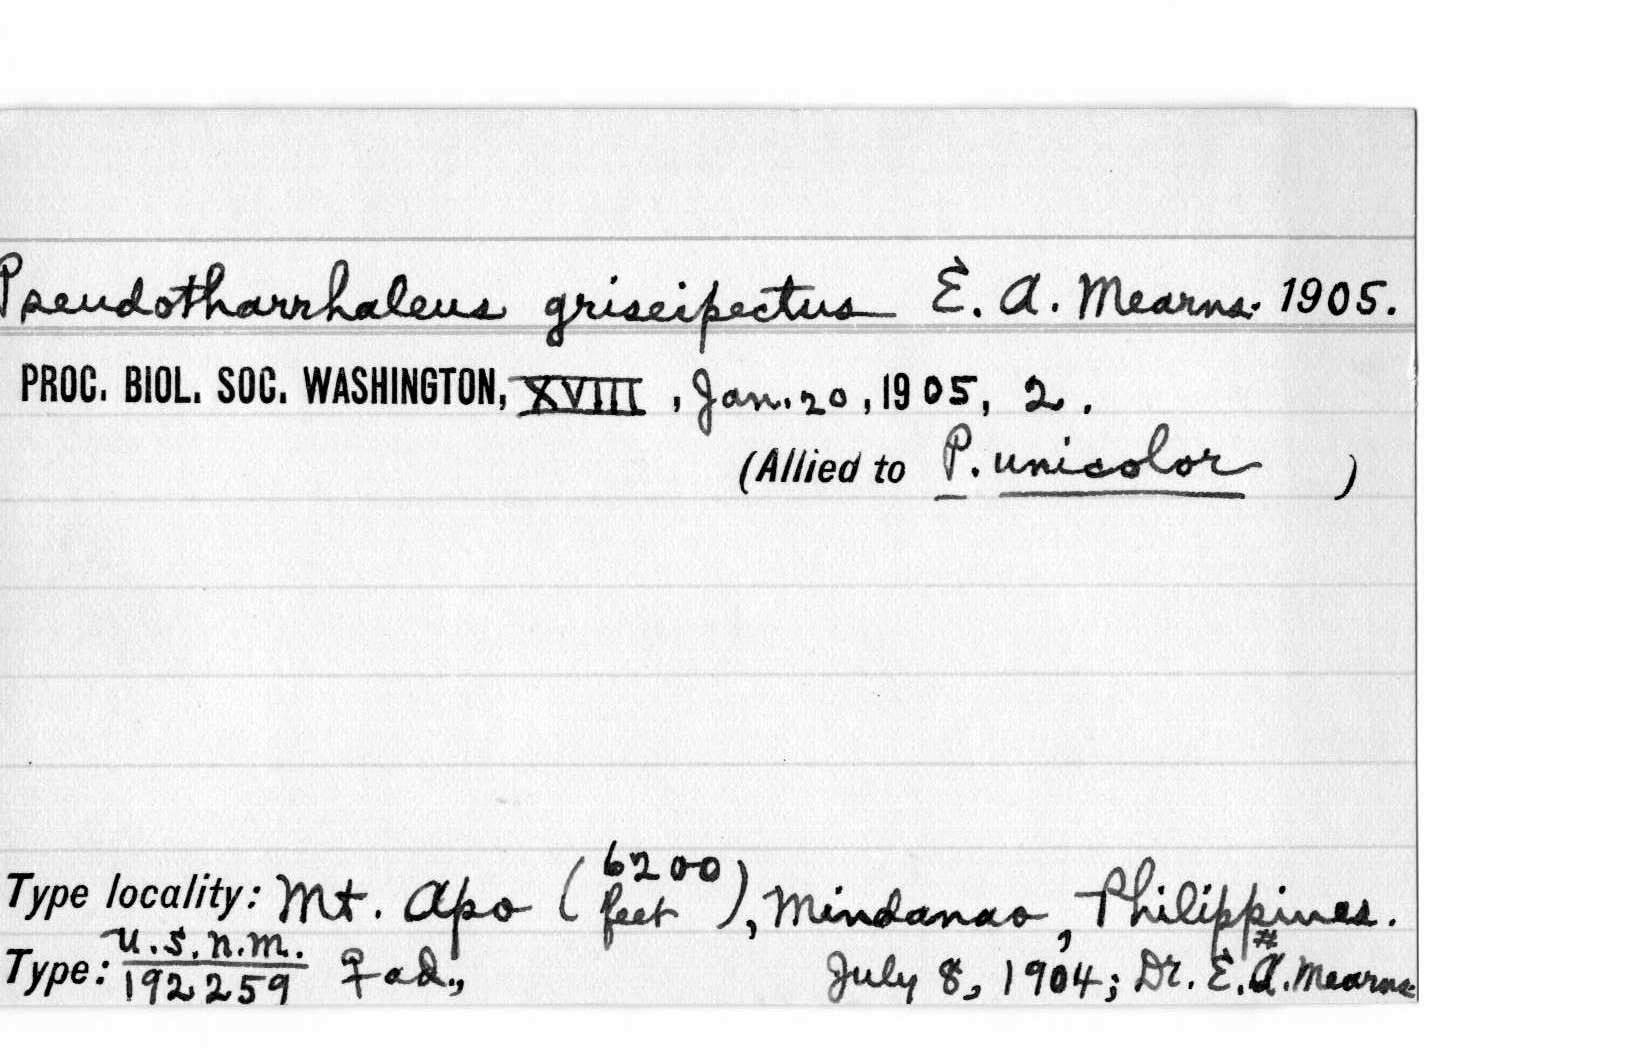 Pseudotharrhaleus griseipectus E. A. Mearns. 1905.
PROC. BIOL. SOC. WASHINGTON, XVIII, Jan. 20, 1905, 2.
(Allied to P. unicolor )
Type locality: Mt. Apo (6200 feet), Mindanao, Philippines.
Type: U.S.N.M. 192259 ♀ ad., July 8, 1904; Dr. E. A. Mearns #